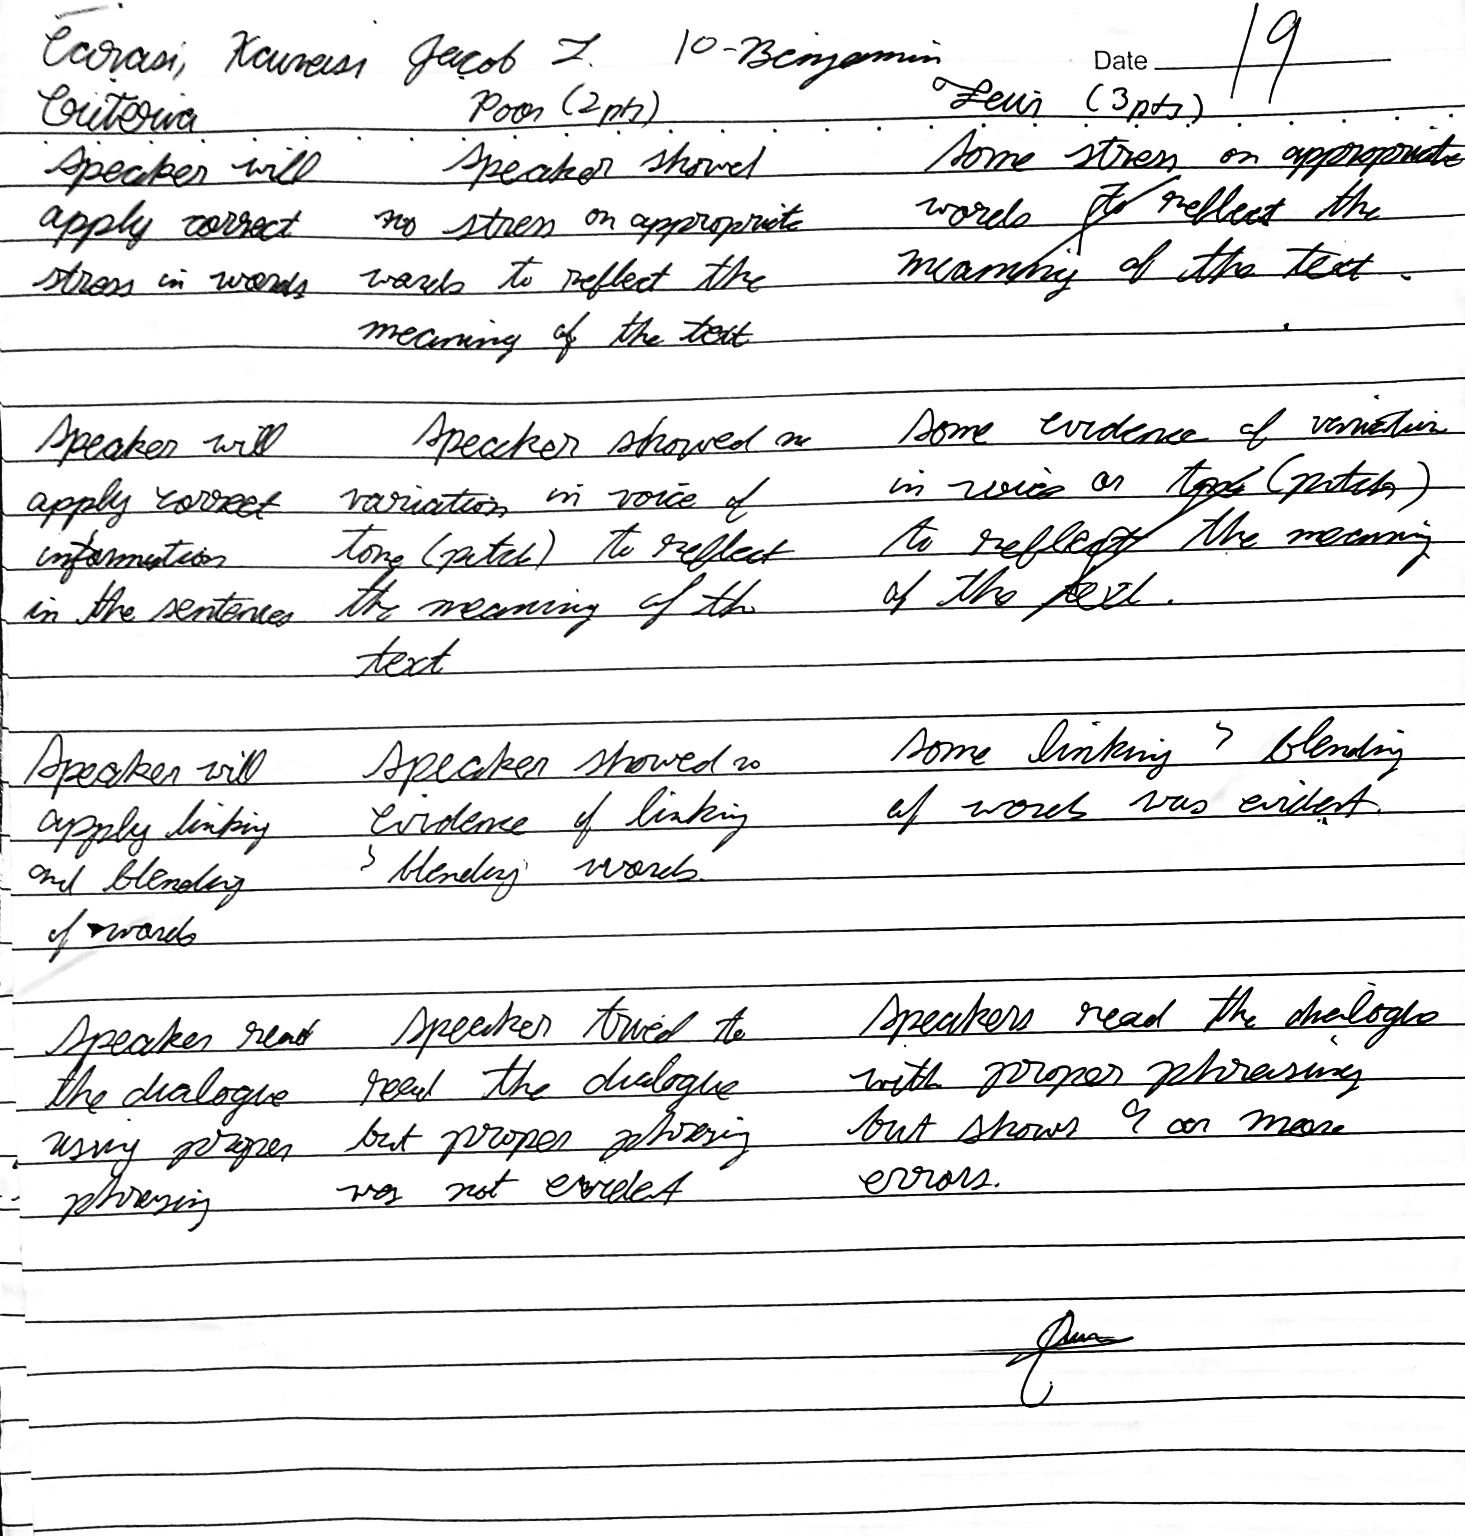 Jacob Z. 10-Benjamin Date 19
Criteria Poor (2pts) Fair (3pts)
Speaker will Speaker showed Some stress on appropriate
apply correct no stress on appropriate words to reflect the
stress in words words to reflect the meaning of the text.
meaning of the text
Speaker will Speaker showed no Some evidence of variation
apply correct variation in voice of in voice or tone (pitch)
information tone (pitch) to reflect to reflect the meaning
in the sentences the meaning of the of the text.
text
Speaker will Speaker showed no Some linking & blending
apply linking evidence of linking of words was evident.
and blending & blending words.
of words
Speaker read Speaker tried to Speakers read the dialogue
the dialogue read the dialogue with proper phrasing
using proper but proper phrasing but shows 9 or more
phrasing was not evident errors.